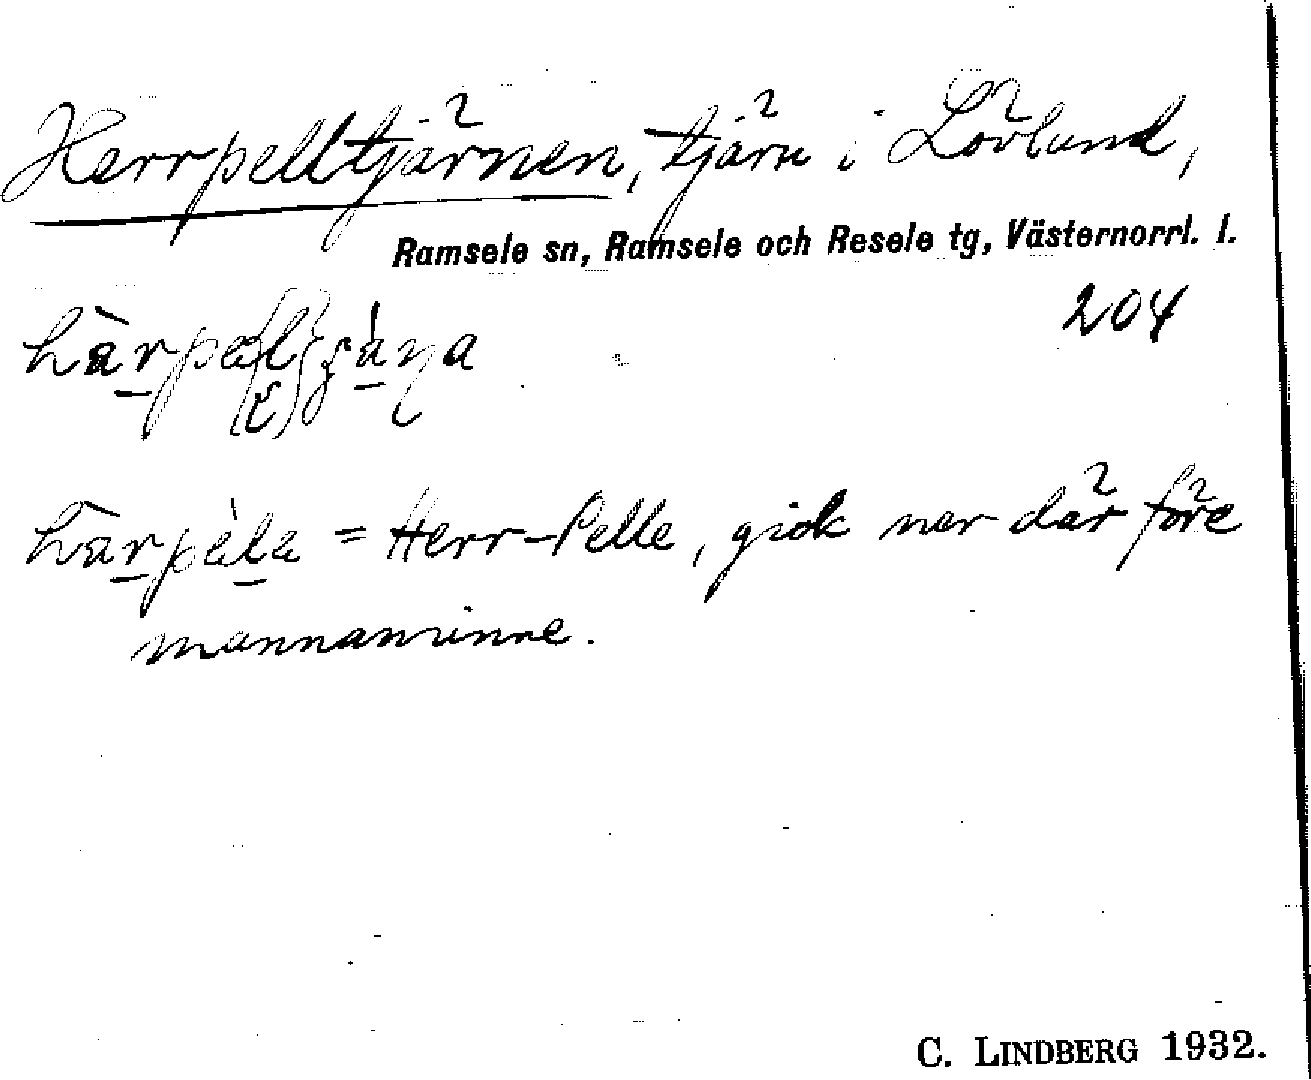 Herrpelltjärnen, tjärn i Lövlund,
Ramsele sn, Ramsele och Resele tg, Västernorrl. l.
204
= Herr-Pelle, gick ner där före
mannaminne.
C. LINDBERG 1932.